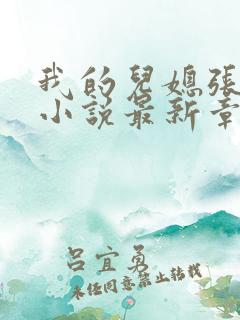 我的兒媳張
小說最新章
呂宜勇
未經同意禁止轉載